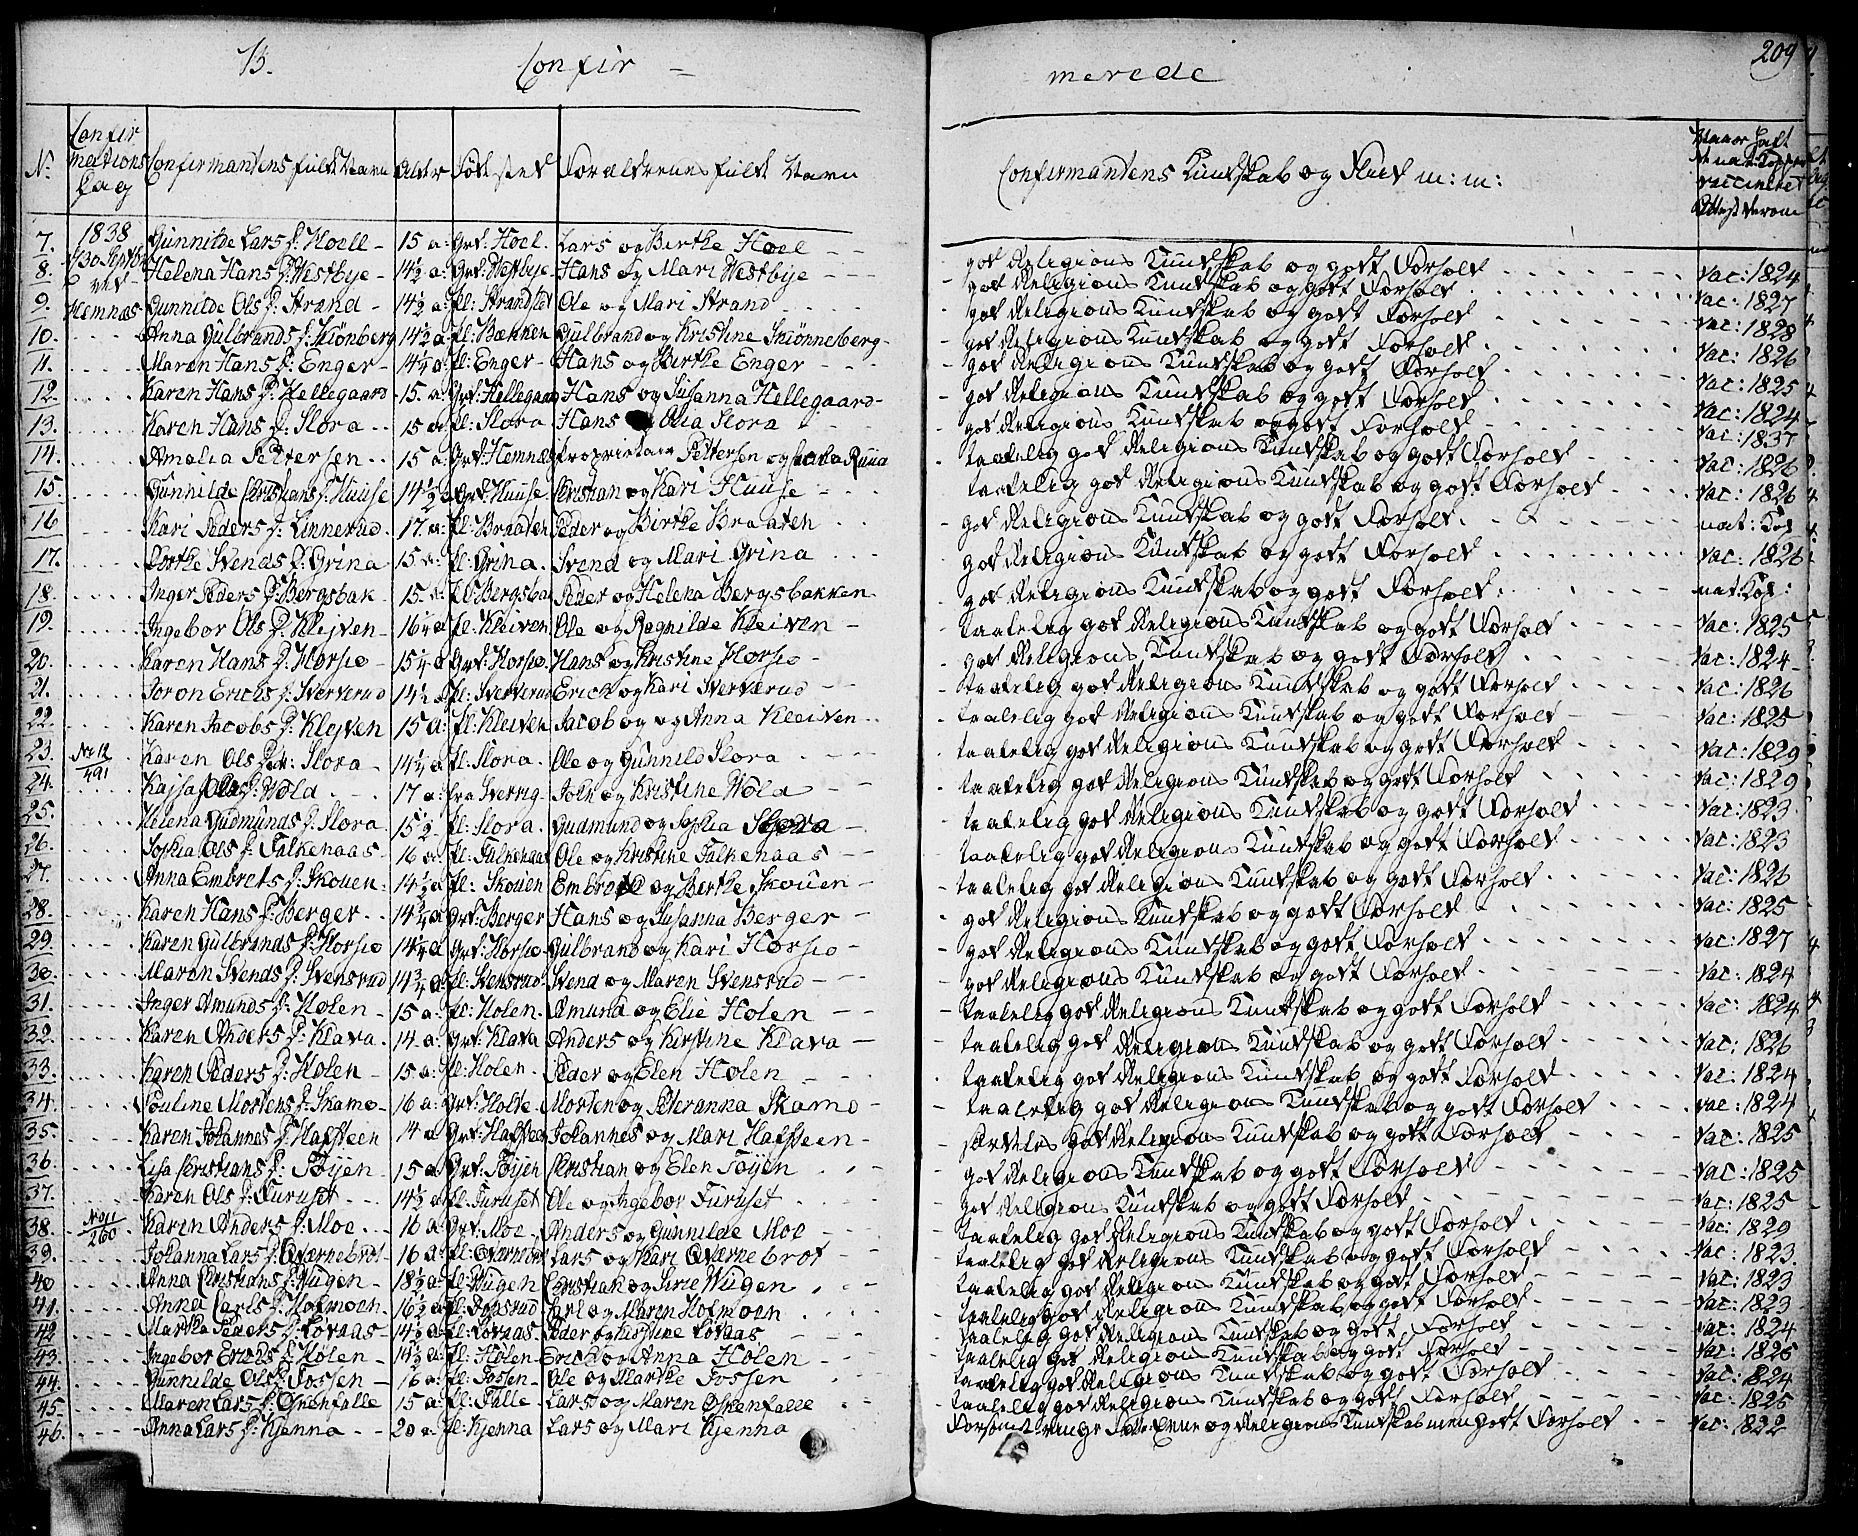 B. Confir = merede 209
No. Confirmations Dag Confirmandens fulde Navn Alder Födested Forældrenes fulde Navn Confirmandens Kundskab og Flid m: m: Naar haft de nat: Kopper vaccineret
7. 1838 Gunnilde Lars D: Hoell - 15 a: Grd: Hoel. Lars og Birthe Hoel - god Religions Kundskab og godt Forhold Vac: 1824
8. d/30 Septbr ved Helena Hans D: Westbye - 14½ a: Grd: Westbye - Hans og Mari Westbye - god Religions Kundskab og godt Forhold Vac: 1827
9. Hemnæs Gunnilde Ols D: Strand - 14½ a: Pl: Strand Ole og Mari Strand god Religions Kundskab og godt Forhold Vac: 1828
10. Anna Gulbrands D: Skiönberg 14½ a Pl: Bækken Gulbrand og Kristine Skiönneberg - god Religions Kundskab og godt Forhold Vac: 1826
11. Maren Hans D: Enger - 14¼ a: Pl: Enger - Hans og Birthe Enger god Religions Kundskab og godt Forhold Vac: 1825
12. Karen Hans D: Hellegaard - 15 a: Grd: Hellegaard Hans og Susanna Hellegaard - god Religions Kundskab og godt Forhold Vac: 1824
13. Karen Hans D: Slora 15 a Pl: Slora Hans Olia Slora god Religions Kundskab og godt Forhold Vac: 1837
14. Amalia Pettersen 15 a Grd: Hemnæs Proprietair Pettersen og taalelig god Religions Kundskab og godt Forhold Vac: 1826
15. Gunhilde Christians D: Huuse 14½ a Grd: Huuse Christian og Kari Huuse - taalelig god Religions Kundskab og godt Forhold Vac: 1826
16 Kari Peders D: Linnerud 17 a: Pl: Braaten Peder og Birthe Braaten god Religions Kundskab og godt Forhold nat: Kop
17. Dorthe Svends D: Grina 15 a: Pl: Grina. Svend og Mari Grina god Religions Kundskab og godt Forhold Vac: 1826
18. Inger Peders D: Bergsbak - 15 a: Pl: Bergsba Peder og Helena Bergsbakken god Religions Kundskab og godt Forhold nat: Kop:
19. Ingebor Ols D: Klejven - 16¼ a Pl: Kleiven Ole og Ragnilde Kleiven - taalelig god Religions Kundskab og godt Forhold Vac: 1825
20. Karen Hans D: Horsio - 15¼ a Grd: Horsio. Hans og Kristine Horsio - god Religions Kundskab og godt Forhold Vac: 1824
21. Joron Erichs D: Sververud 14½ a Pl: Sververud Erich og Kari Sverværud - taalelig god Religions Kundskab og godt Forhold Vac: 1826
22. Karen Jacobs D: Klejven 15 a: Pl: Kleiven Jacob og og Anna Kleiven taalelig god Religions Kundskab og godt Forhold Vac: 1825
23. No 12/491 Karen Ols D: Slora - 14¼ a Pl: Slora. Ole og Gunnild Slora - taalelig god Religions Kundskab og godt Forhold Vac: 1829
24. Kajsa D: Wola 17 a: fra Sverrig - John og Kristine Wola - taalelig god Religions Kundskab og godt Forhold Vac: 1829
25. Helena Gudmunds D: Slora 15½ Pl: Slora. Gudmund og Sophia Slora - taalelig god Religions Kundskab og godt Forhold Vac: 1823
26. Sophia Ols D: Falkenaas - 16 a Pl: Falkenaas Ole og Kristine Falkenaas - taalelig god Religions Kundskab og godt Forhold Vac: 1823
27. Anna Embrets D: Skouen 14½ a Pl: Skouen Embret og Berthe Skouen - taalelig god Religions Kundskab og godt Forhold Vac: 1826
28. Karen Hans D: Berger 14¼ a Grd: Berger Hans og Susanna Berger - god Religions Kundskab og godt Forhold Vac: 1825
29. Karen Gulbrands D: Horsio 14¼ a Grd: Horsio - Gulbrand og Kari Horsio - god Religions Kundskab og godt Forhold Vac: 1827
30. Maren Svends D: Svensrud 14¾ a Pl: Svensrud Svend og Maren Svensrud - god Religions Kundskab og godt Forhold Vac: 1824
31. Inger Amunds D: Holen - 15 a: Pl: Holen. Amund og Elie Holen - taalelig god Religions Kundskab og godt Forhold Vac: 1824
32. Karen Anders D: Klava. 14 a: Grd: Klava Anders og Kirstine Klava - taalelig god Religions Kundskab og godt Forhold Vac: 1826
33. Karen Peders D: Holen - 15 a: Pl: Holen. Peder og Elen Holen taalelig god Religions Kundskab og godt Forhold Vac: 1824
34. Pouline Mortens D: Skamo - 16 a: Grd: Holte - Morten og Peteranna Skamo - taalelig god Religions Kundskab og godt Forhold Vac: 1824
35. Karen Johannes D: Hafsteen 14 a Grd: Haffsteen Johannes og Mari Hafsteen - særdeles god Religions Kundskab og godt Forhold Vac: 1825
36. Lisa Christians D: Töijen - 15 a Grd: Töijen Christian og Elen Töijen god Religions Kundskab og godt Forhold Vac: 1825
37. Karen Ols D: Furuset 14½ a Pl: Furuset Ole og Ingebor Furuset god Religions Kundskab og godt Forhold Vac: 1825
38. No 211/260 Karen Anders D: Moe 16 a Grd: Moe - Anders og Gunnilde Moe - taalelig god Religions Kundskab og godt Forhold Vac: 1829
39. Johanna Lars D: Qværnebrot - 16 a: Pl: Qværnebrot Lars og Kari Qværnebrot - taalelig god Religions Kundskab og godt Forhold Vac: 1823.
40 Anna Christians D: Wugen - 18½ a: Pl: Wugen Christian og Sirie Wugen taalelig god Religions Kundskab og godt Forhold Vac: 1823
41. Anna Carls D: Hofmoen. 16½ a Pl: Carl og Maren Hofmoen taalelig god Religions Kundskab og godt Forhold Vac: 1823
42 Martha Peders D: Lövaas - 14½ a Pl: Lövaas Peder og Kirstine Lövaas taalelig god Religions Kundskab og godt Forhold Vac: 1824
43. Ingebor Erichs D: Holen - 14½ a: Pl: Holen - Erich og Anna Holen taalelig god Religions Kundskab og godt Forhold Vac: 1825
44. Gunnilde Ols D: Fossen - 16 a: Pl: Fossen - Ole og Marthe Fossen taalelig god Religions Kundskab og godt Forhold Vac: 1824
45. Maren Lars D: Ökenfalle 15 a: Pl: Falle Lars og Maren Ökenfalle taalelig god Religions Kundskab og godt Forhold Vac: 1825
46. Anna Lars D: Kjenna - 20 a: Pl: Kjenna Lars og Mari Kjenna ringe Evne og Religions Kundskab men godt Forhold Vac: 1822